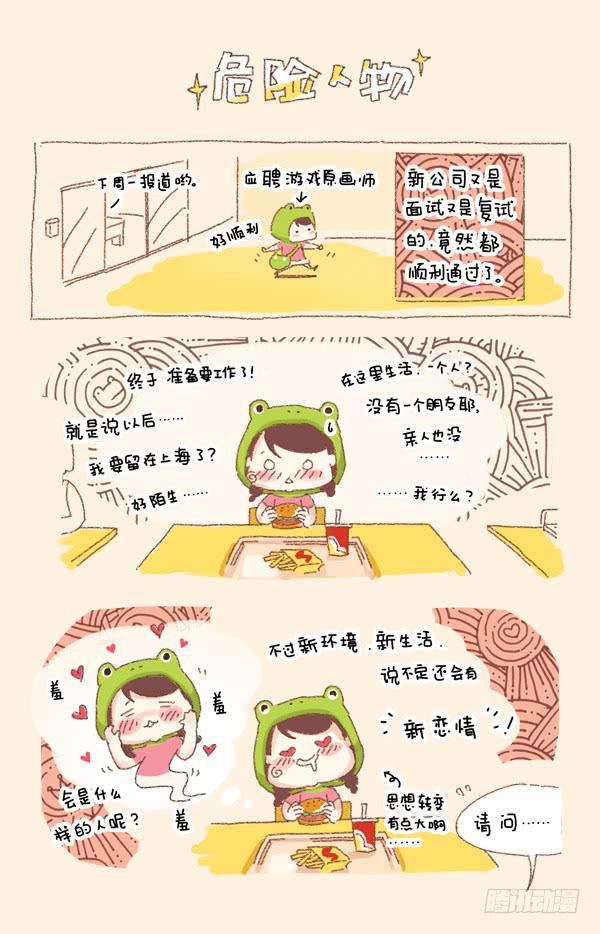 危险人物
下周一报道哟。
应聘游戏原画师
好顺利
新公司又是
面试又是复试
的,竟然都
顺利通过了。
终于 准备要工作了!
就是说以后……
我要留在上海了?
好陌生……
在这里生活,一个人?
没有一个朋友耶,
亲人也没
……
……我行么?
不过新环境.新生活.
说不定还会有
新恋情!
羞
羞
羞
会是什么
样的人呢?
思想转变
有点大啊
……
请问……
腾讯动漫